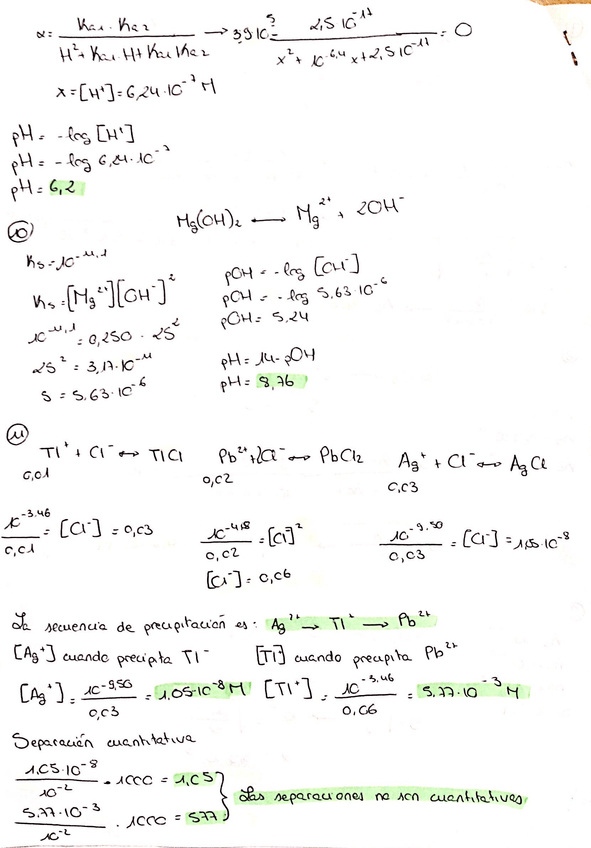 α = Ka1 · Ka2 / H² + Ka1 · H + Ka1 Ka2 → 3,9 10⁻⁵ = 2,5 10⁻¹⁷ / x² + 10⁻⁶·⁴ x + 2,5 10⁻¹⁷ = 0
x = [H⁺] = 6,24 · 10⁻⁷ M
pH = - log [H⁺]
pH = - log 6,24 · 10⁻⁷
pH = 6,2
10
Mg(OH)₂ ⟷ Mg²⁺ + 2OH⁻
Ks = 10⁻¹¹·¹
Ks = [Mg²⁺][OH⁻]²
10⁻¹¹·¹ = 0,250 · 2S²
2S² = 3,17 · 10⁻¹¹
S = 5,63 · 10⁻⁶
pOH = - log [OH⁻]
pOH = - log 5,63 · 10⁻⁶
pOH = 5,24
pH = 14 - pOH
pH = 8,76
11
Tl⁺ + Cl⁻ ↔ TlCl Pb²⁺ + 2Cl⁻ ↔ PbCl₂ Ag⁺ + Cl⁻ ↔ AgCl
0,01 0,02 0,03
10⁻³·⁴⁶ / 0,01 = [Cl⁻] = 0,03 10⁻⁴·⁸ / 0,02 = [Cl⁻]² 10⁻⁹·⁵⁰ / 0,03 = [Cl⁻] = 1,05 · 10⁻⁸
[Cl⁻] = 0,06
La secuencia de precipitación es: Ag²⁺ → Tl⁺ → Pb²⁺
[Ag⁺] cuando precipita Tl⁻ [Tl] cuando precipita Pb²⁺
[Ag⁺] = 10⁻⁹·⁵⁰ / 0,03 = 1,05 · 10⁻⁸ M [Tl⁺] = 10⁻³·⁴⁶ / 0,06 = 5,77 · 10⁻³ M
Separación cuantitativa
1,05 · 10⁻⁸ / 10⁻² · 1000 = 1,05
5,77 · 10⁻³ / 10⁻² · 1000 = 577
Las separaciones no son cuantitativas